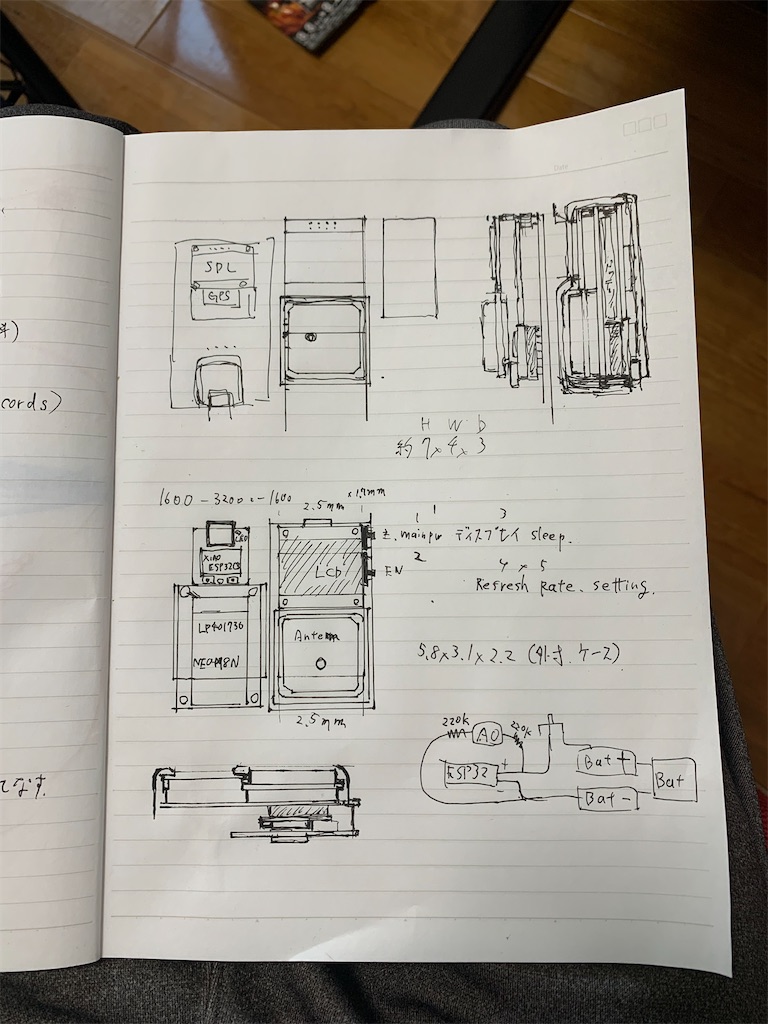 Date
SPL
GPS
H W D
約 7×4×3
1600-3200-1600
2.5mm
×1.7mm
1
3
主. mainpw ディスプレイ sleep.
EN
2
4 × 5
Refresh Rate. setting.
XIAO
ESP32C3
LCD
LP401730
NEO-M8N
Antenna
5.8×3.1×2.2 (外寸. ケース)
2.5mm
220k
A0
220k
ESP32
+
Bat +
Bat -
Bat
cords)
てます